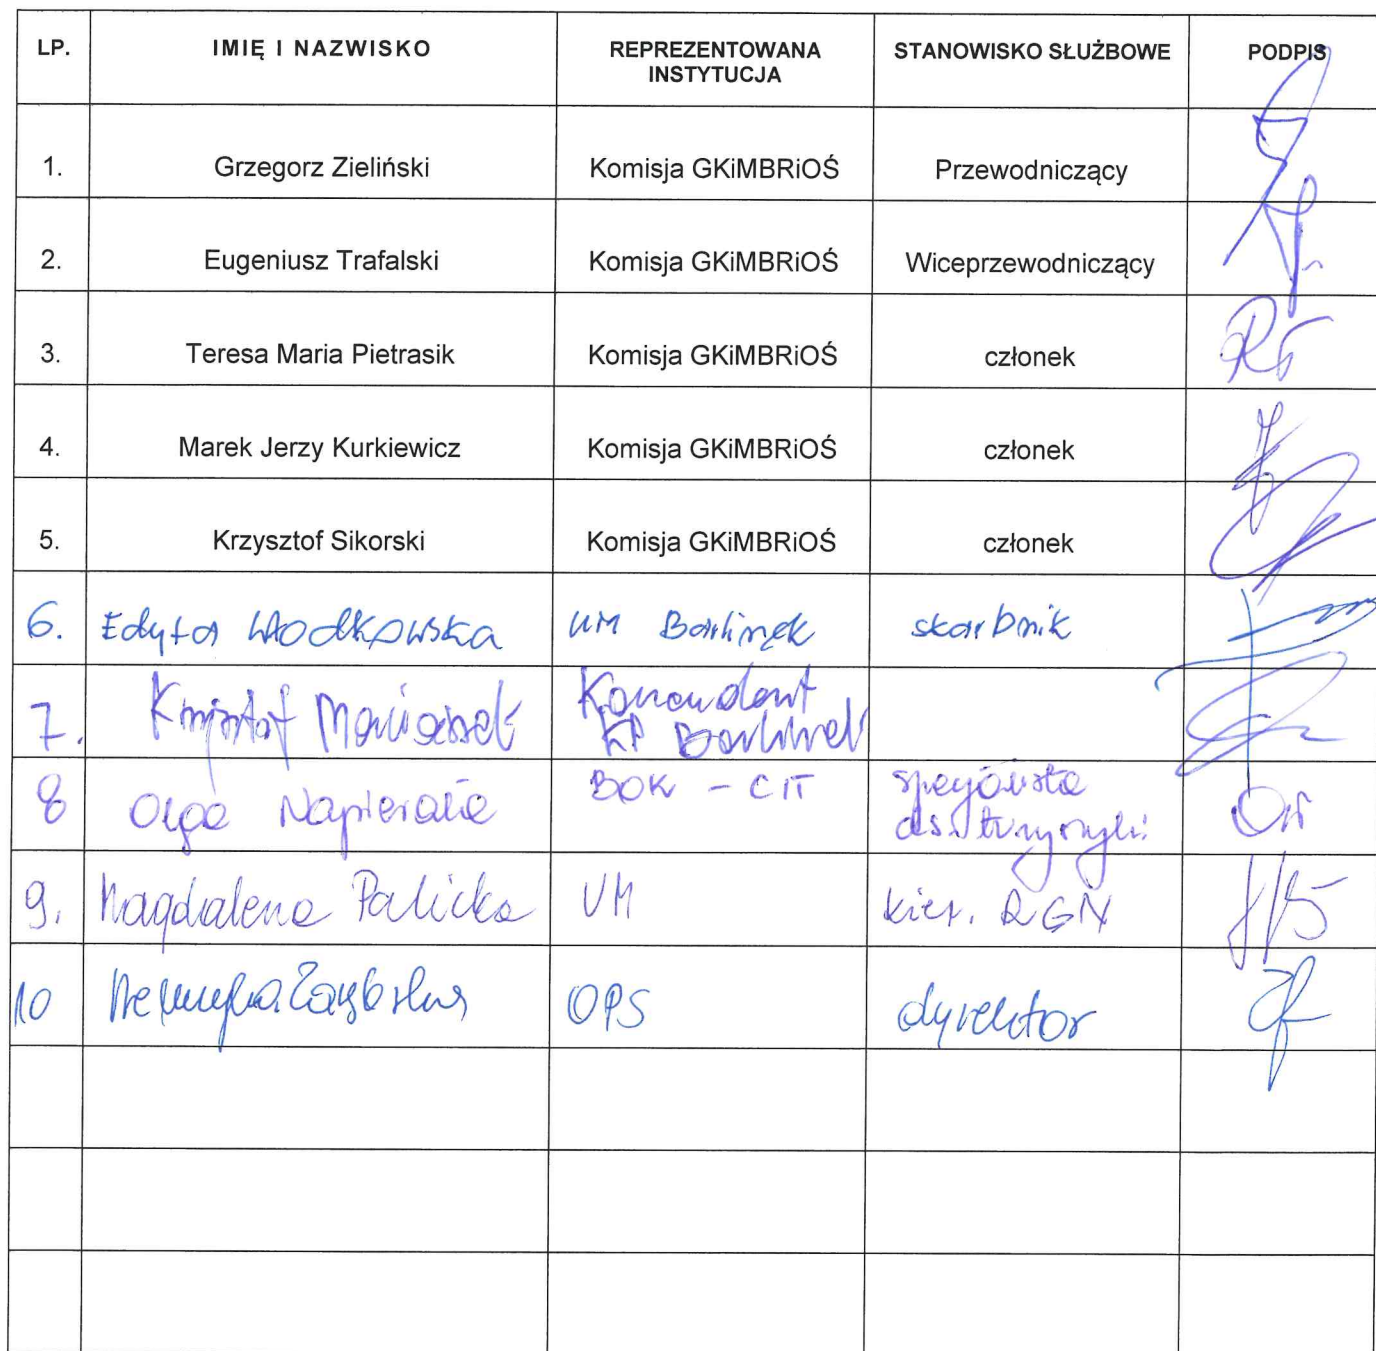 LP. IMIĘ I NAZWISKO REPREZENTOWANA INSTYTUCJA STANOWISKO SŁUŻBOWE PODPIS
1. Grzegorz Zieliński Komisja GKiMBRiOŚ Przewodniczący
2. Eugeniusz Trafalski Komisja GKiMBRiOŚ Wiceprzewodniczący
3. Teresa Maria Pietrasik Komisja GKiMBRiOŚ członek
4. Marek Jerzy Kurkiewicz Komisja GKiMBRiOŚ członek
5. Krzysztof Sikorski Komisja GKiMBRiOŚ członek
6. Edyta Włodkowska UM Barlinek skarbnik
7. Krzysztof Komendant KP Barlinek
8 Olga Napierała BOK - CIT specjalista ds. turystyki
9. Magdalena Palicka UM kier. RGN
10 OPS dyrektor